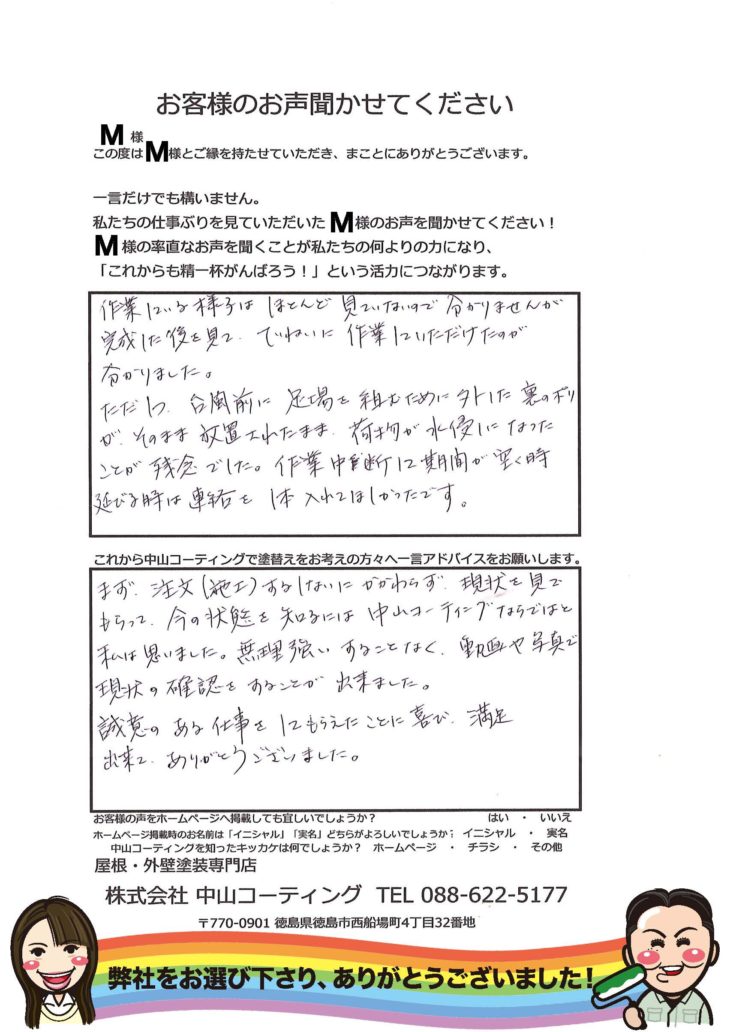 お客様のお声聞かせてください
M 様
この度は M様とご縁を持たせていただき、まことにありがとうございます。
一言だけでも構いません。
私たちの仕事ぶりを見ていただいた M様のお声を聞かせてください！
M 様の率直なお声を聞くことが私たちの何よりの力になり、
「これからも精一杯がんばろう！」という活力につながります。
作業している様子は ほとんど 見ていないので 分かりませんが
完成した後を見て、ていねいに 作業していただけたのが
分かりました。
ただ1つ、台風前に 足場を 組むために外した 裏のポリ
が、そのまま 放置されたまま、荷物が 水侵しになった
ことが 残念でした。作業中断して期間が空く時
延びる時は 連絡を 1本 入れてほしかったです。
これから中山コーティングで塗替えをお考えの方々へ一言アドバイスをお願いします。
まず、注文(施工)するしないに かかわらず、現状を見て
もらって、今の状態を 知るには 中山コーティングならではと
私は思いました。無理強いすることなく、動画や写真で
現状の確認をすることが 出来ました。
誠意の ある 仕事を してもらえたことに 喜び、満足
出来て、ありがとうございました。
お客様の声をホームページへ掲載しても宜しいでしょうか？ はい ・ いいえ
ホームページ掲載時のお名前は「イニシャル」「実名」どちらがよろしいでしょうか； イニシャル ・ 実名
中山コーティングを知ったキッカケは何でしょうか？ ホームページ ・ チラシ ・ その他
屋根・外壁塗装専門店
株式会社 中山コーティング TEL 088-622-5177
〒770-0901 徳島県徳島市西船場町4丁目32番地
弊社をお選び下さり、ありがとうございました！